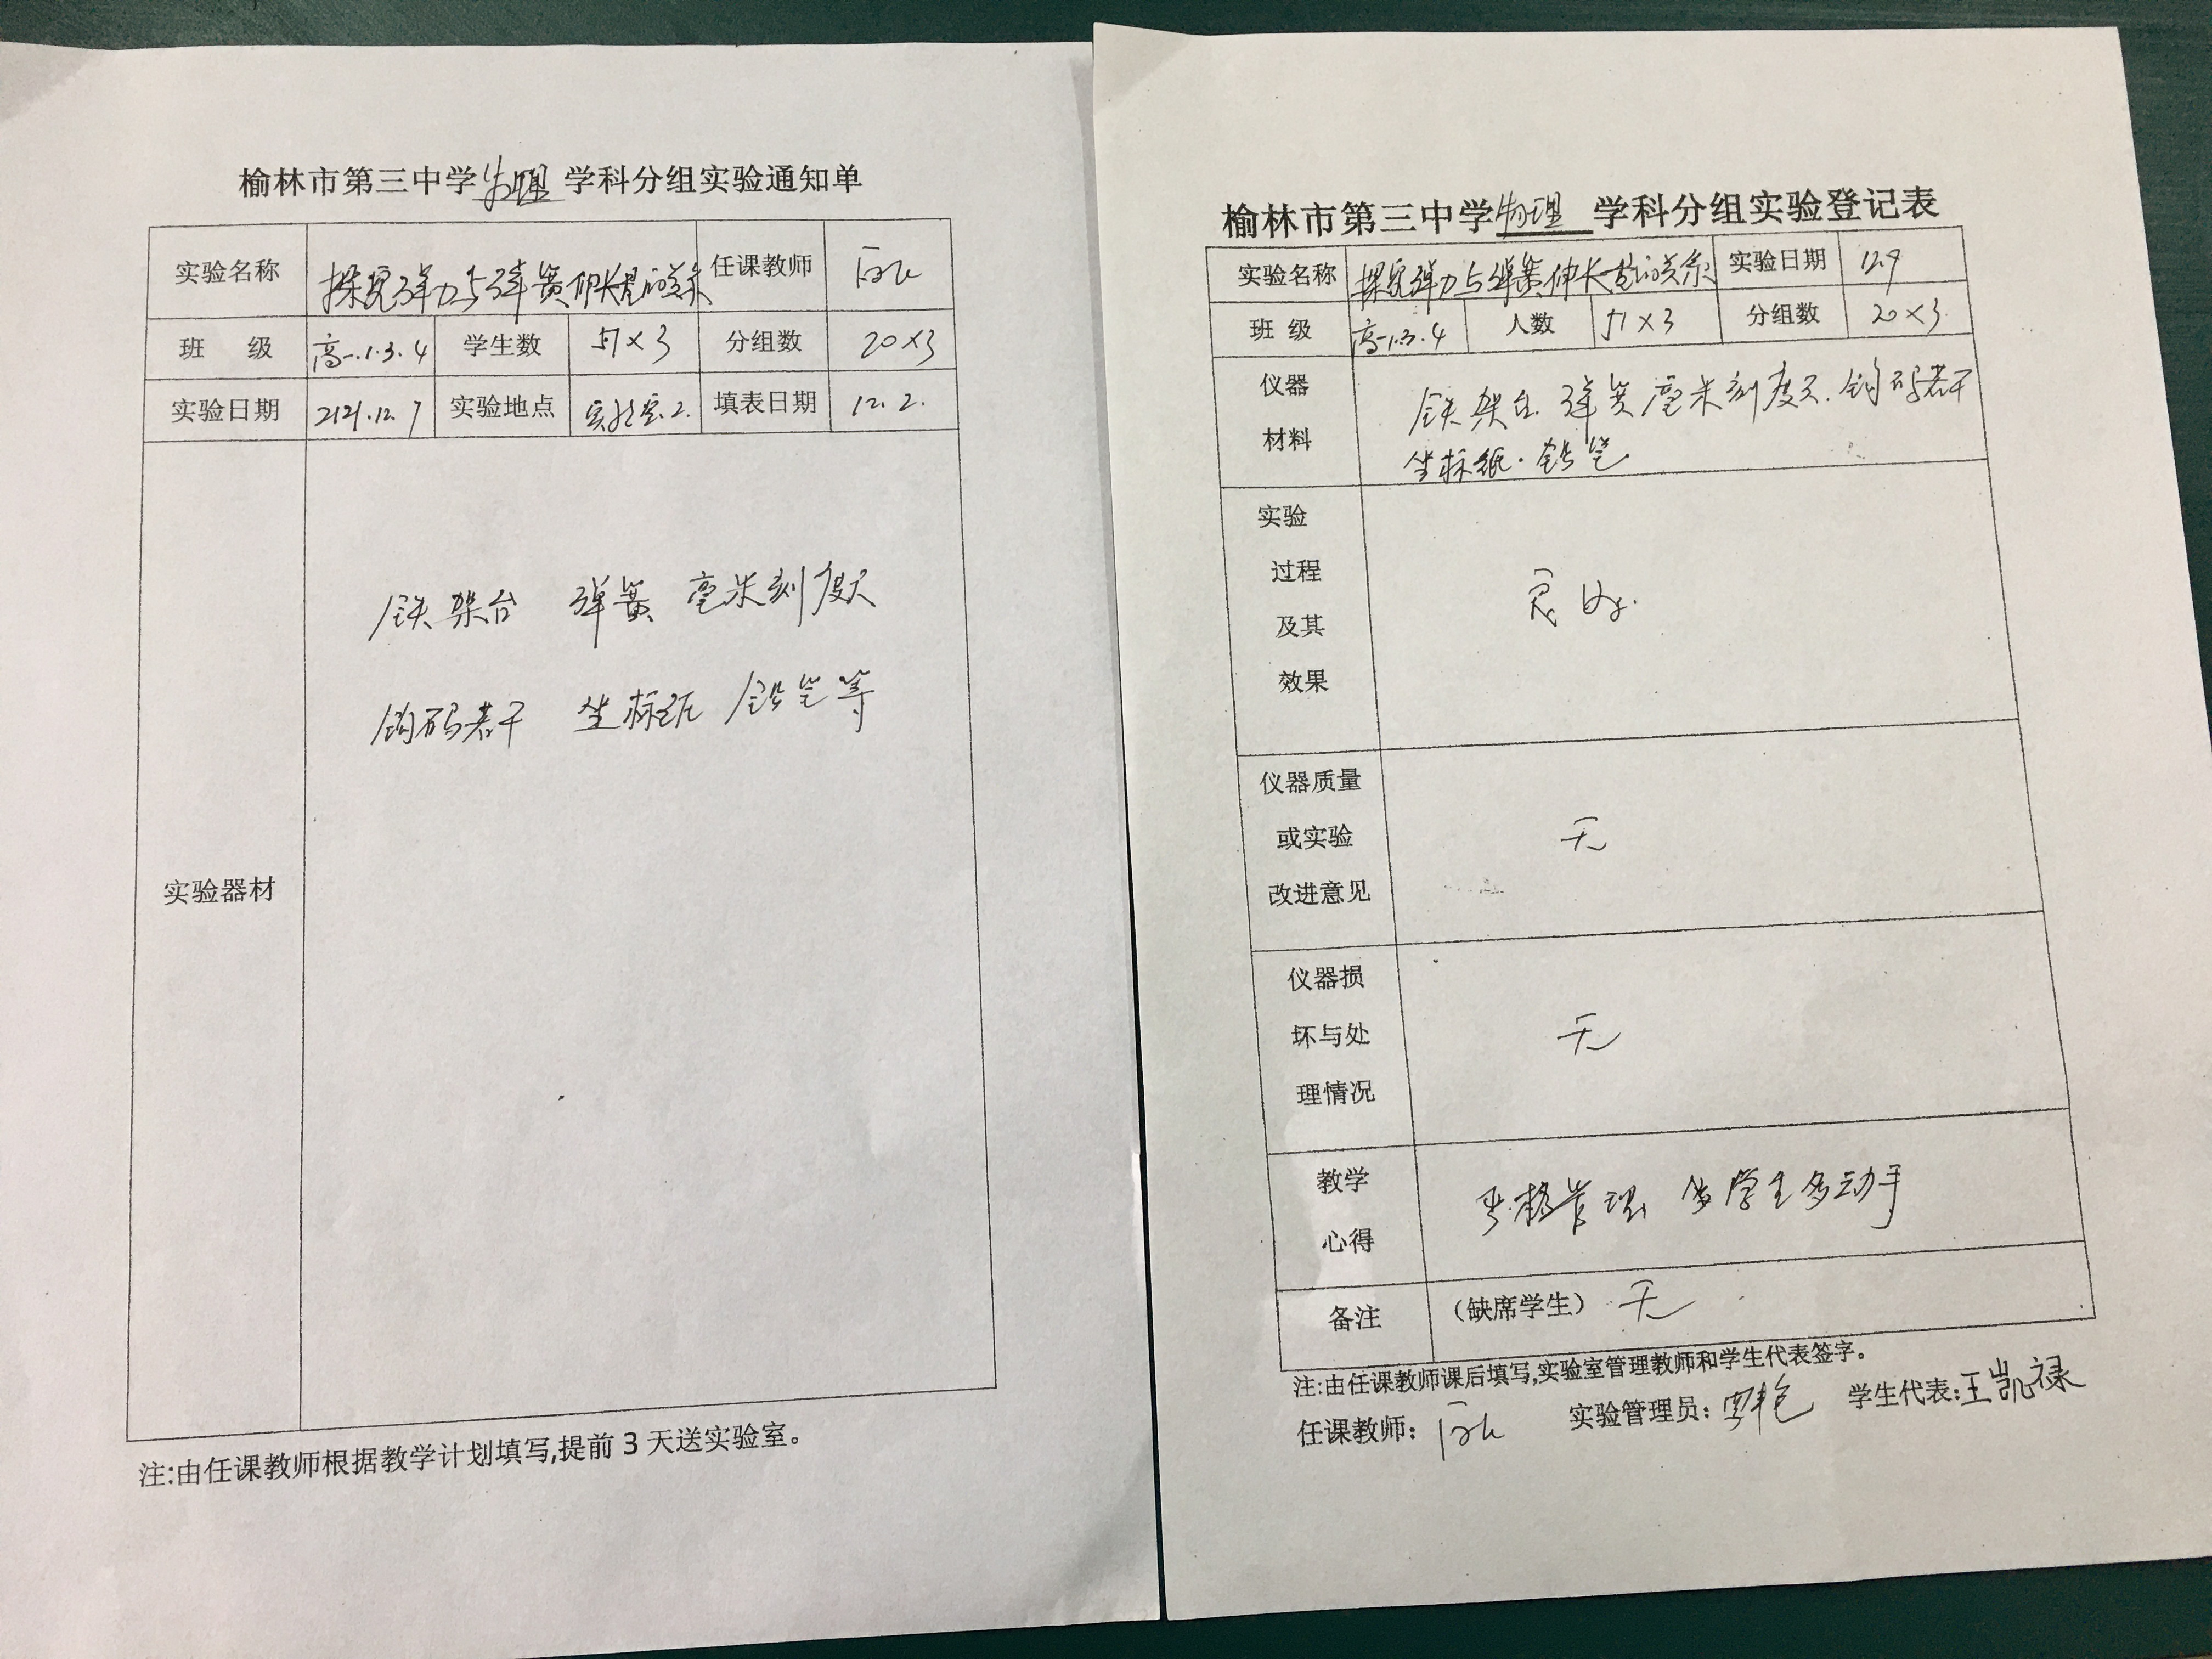 榆林市第三中学物理学科分组实验通知单
实验名称 探究弹力与弹簧伸长量的关系 任课教师
班 级 高一.1.3.4 学生数 51×3 分组数 20×3
实验日期 2121.12.7 实验地点 实验室.2. 填表日期 12.2.
实验器材
铁架台 弹簧 毫米刻度尺
钩码若干 坐标纸 铅笔等
注:由任课教师根据教学计划填写,提前3天送实验室。
榆林市第三中学物理学科分组实验登记表
实验名称 探究弹力与弹簧伸长量的关系 实验日期
班 级 高一1.3.4 人数 51×3 分组数 20×3
仪器
材料
铁架台.弹簧 毫米刻度尺.钩码若干
坐标纸.铅笔
实验
过程
及其
效果
良好.
仪器质量
或实验
改进意见
无
仪器损
坏与处
理情况
无
教学
心得
严格管理 学生多动手
备注 (缺席学生) 无
注:由任课教师课后填写,实验室管理教师和学生代表签字。
任课教师: 实验管理员: 学生代表:王凯禄